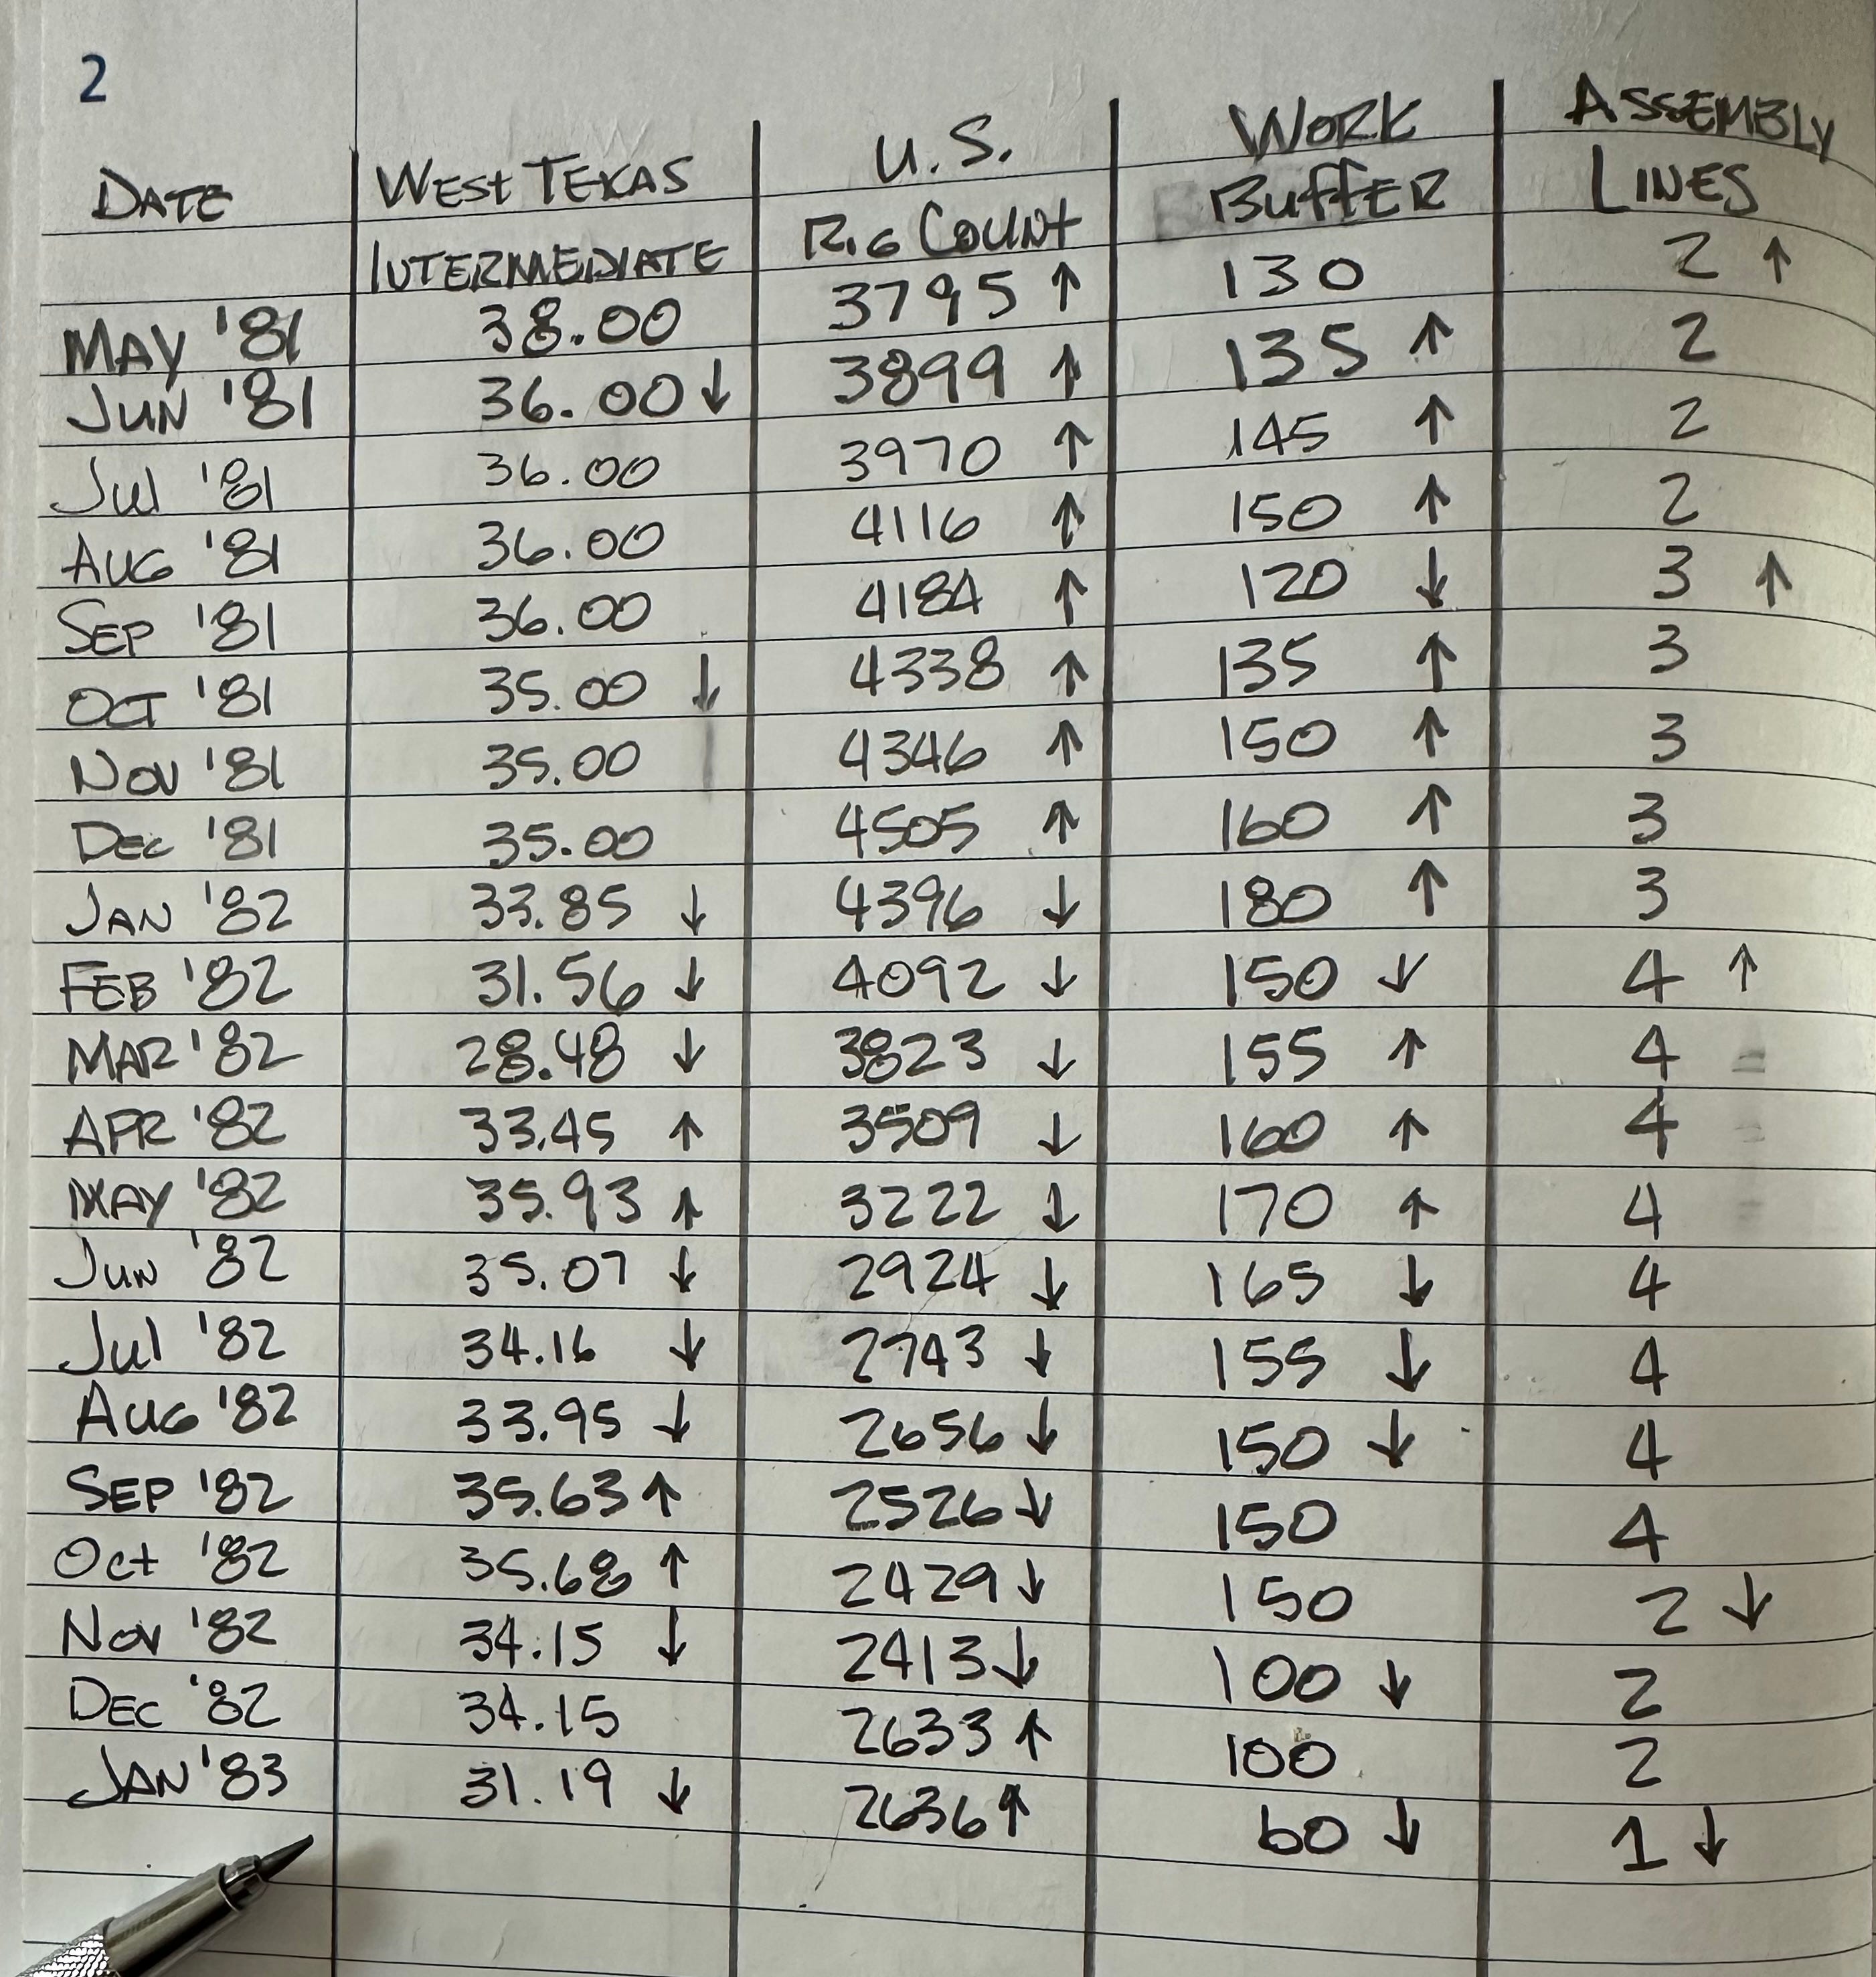 2
DATE WEST TEXAS U.S. WORK ASSEMBLY
INTERMEDIATE RIG COUNT BUFFER LINES
MAY '81 38.00 3795 ↑ 130 2 ↑
JUN '81 36.00 ↓ 3899 ↑ 135 ↑ 2
Jul '81 36.00 3970 ↑ 145 ↑ 2
AUG '81 36.00 4116 ↑ 150 ↑ 2
SEP '81 36.00 4184 ↑ 120 ↓ 3 ↑
OCT '81 35.00 ↓ 4338 ↑ 135 ↑ 3
NOV '81 35.00 4346 ↑ 150 ↑ 3
DEC '81 35.00 4505 ↑ 160 ↑ 3
JAN '82 33.85 ↓ 4396 ↓ 180 ↑ 3
FEB '82 31.56 ↓ 4092 ↓ 150 ↓ 4 ↑
MAR '82 28.48 ↓ 3823 ↓ 155 ↑ 4
APR '82 33.45 ↑ 3509 ↓ 160 ↑ 4
MAY '82 35.93 ↑ 3222 ↓ 170 ↑ 4
Jun '82 35.07 ↓ 2924 ↓ 165 ↓ 4
Jul '82 34.16 ↓ 2743 ↓ 155 ↓ 4
AUG '82 33.95 ↓ 2656 ↓ 150 ↓ 4
SEP '82 35.63 ↑ 2526 ↓ 150 4
Oct '82 35.68 ↑ 2429 ↓ 150 2 ↓
NOV '82 34.15 ↓ 2413 ↓ 100 ↓ 2
DEC '82 34.15 2633 ↑ 100 2
JAN '83 31.19 ↓ 2636 ↑ 60 ↓ 1 ↓